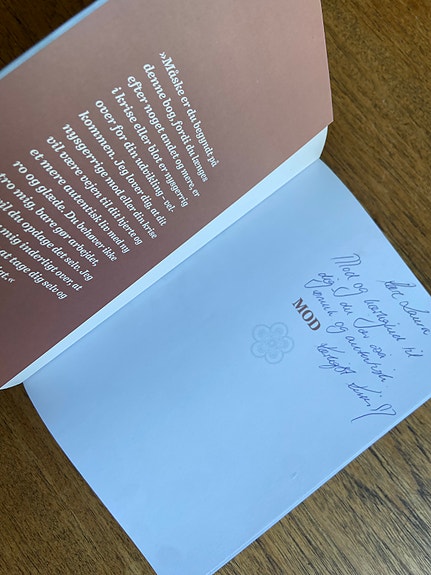 »Måske er du begyndt på
denne bog, fordi du længes
efter noget andet og mere, er
i krise eller blot er nysgerrig
over for din udvikling – vel-
kommen. Jeg lover, at dit
nysgerrige mod eller din krise
vil være vejen til dit hjerte og
et mere autentisk liv med ny
ro og glæde. Du behøver ikke
tro mig, bare gør arbejdet,
vil du opdage det selv. Jeg
mig inderligt over, at
at tage dig selv og
gt.«
MOD
Mod og
til
dig
du
og